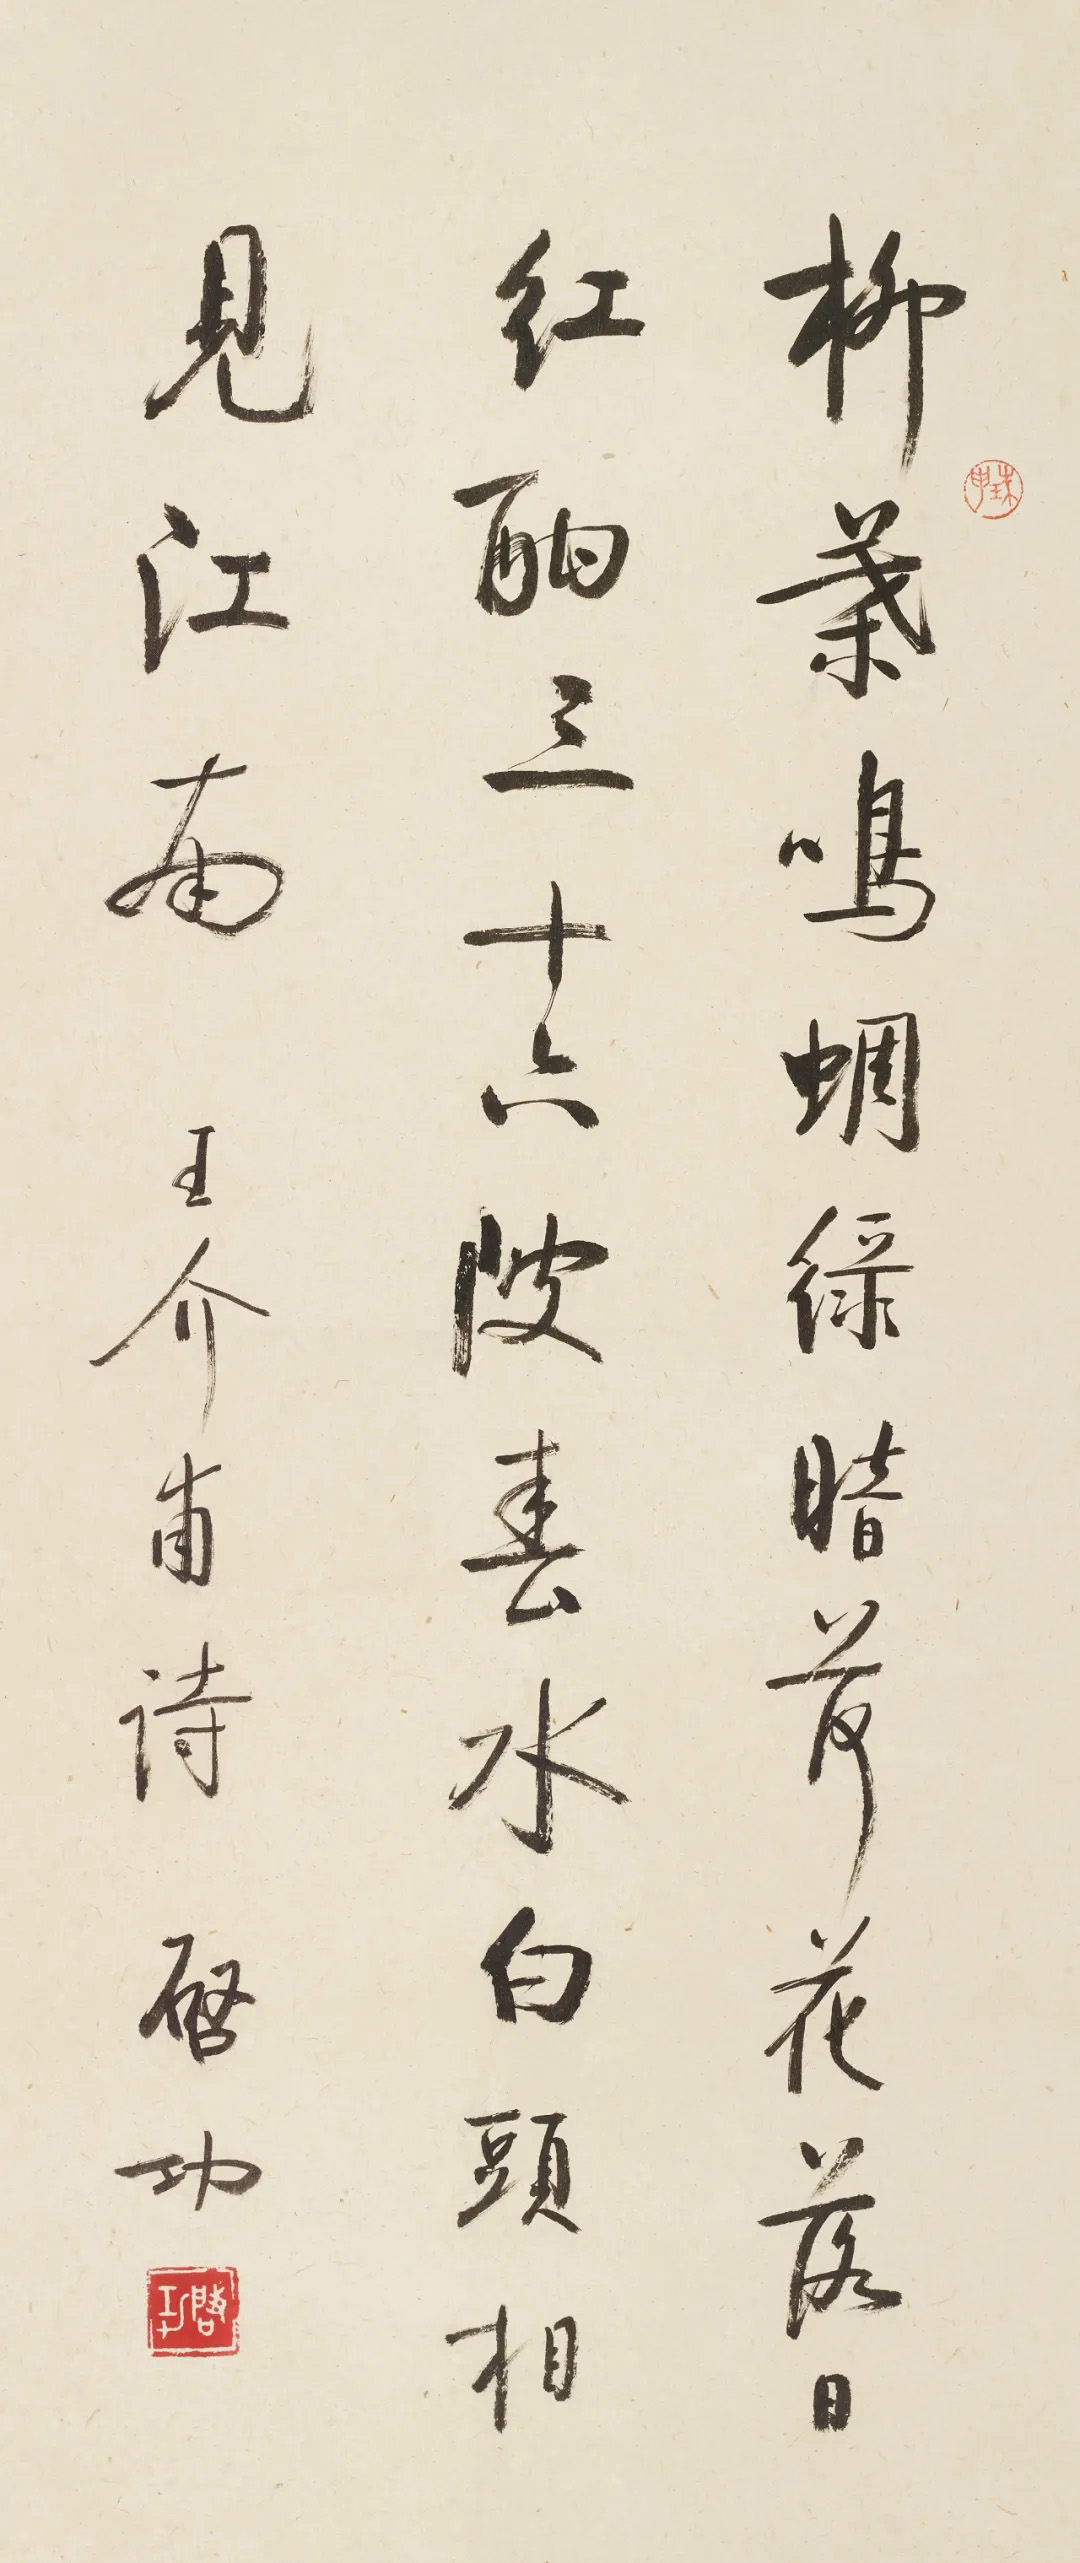 珠申
柳葉鳴蜩綠暗荷花落日
紅酣三十六陂春水白頭相
見江南 王介甫詩 啓功
啓功